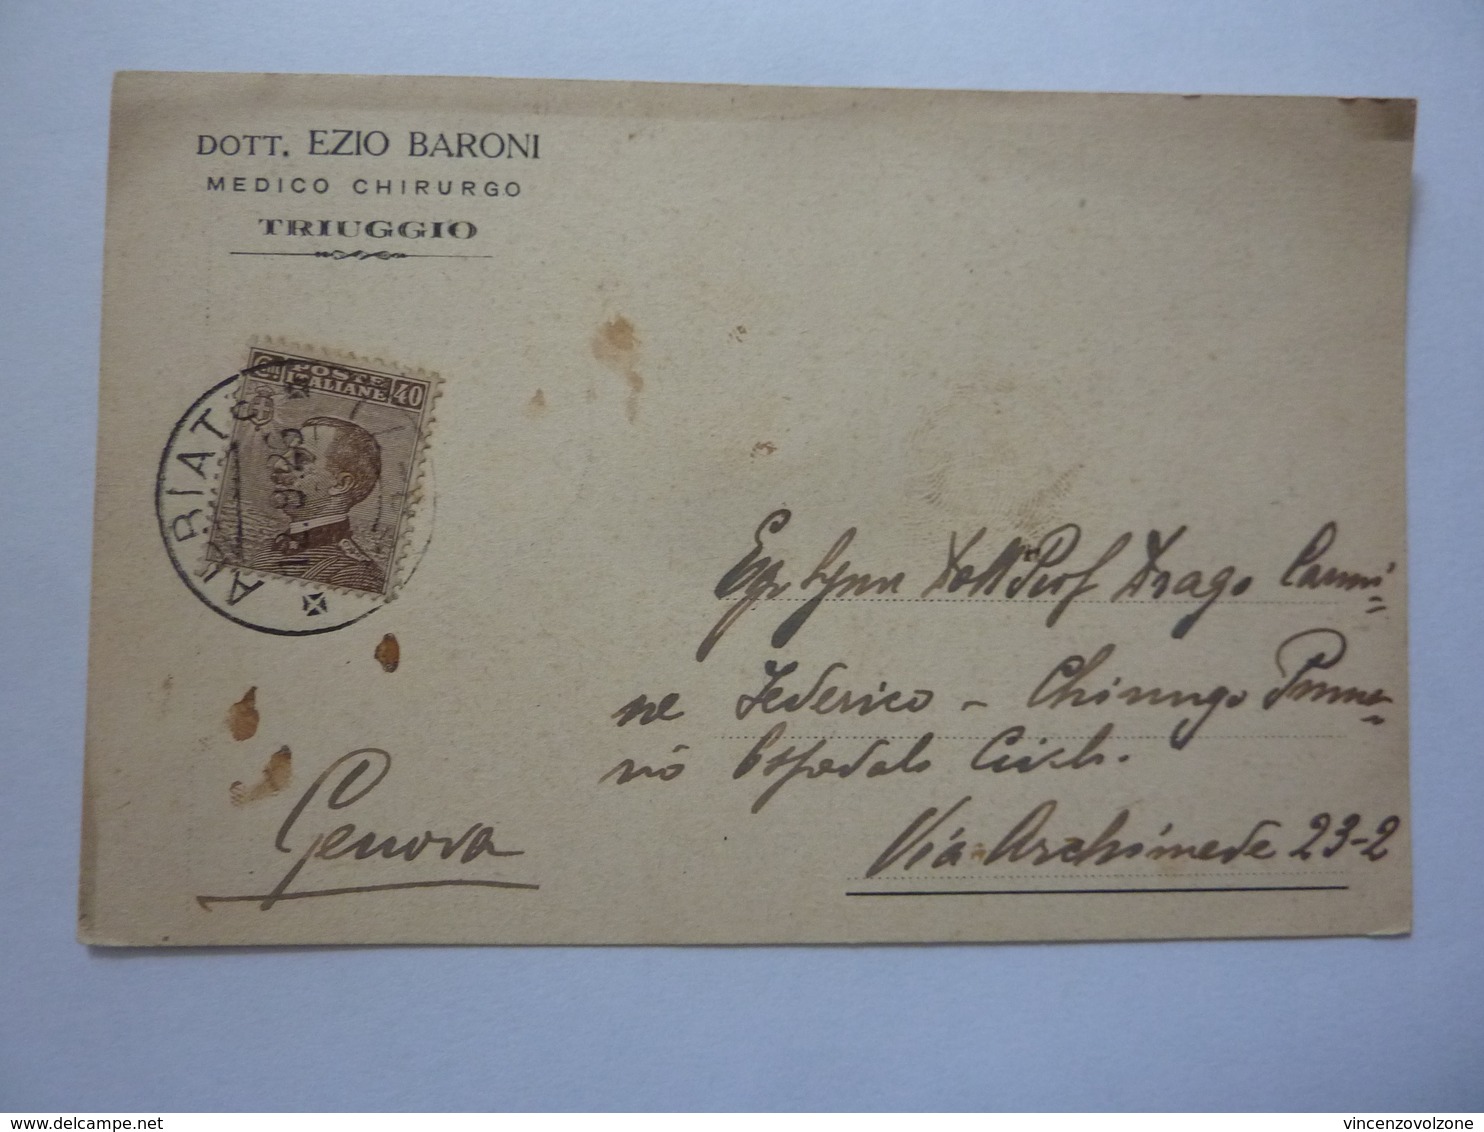 DOTT. EZIO BARONI
MEDICO CHIRURGO
TRIUGGIO
Cmi POSTE ITALIANE 40
ALBIATE
Dott Prof Drago Carmi=
ne Federico - Chirurgo Prima=
rio Ospedale Civile.
Via Archimede 23-2
Genova
delcampe.net
vincenzovolzone